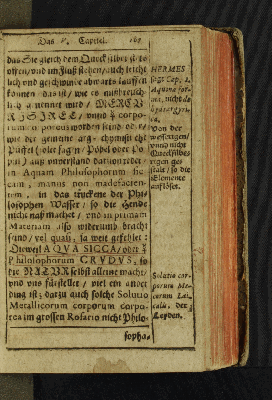 Das V. Capitel. 167
das Sie gleich dem Quecksilber
offen/und im Fluß stehen/auch leicht-
lich und geschwinde abwarts lauffen
konnen das ist / wie es mißbreuch-
lich genennet wird / MERCU-
RISIREE / unnd corpo-
rum porous worden seind oder
wie der gemeine arg-chymistische
Püffel (solt sagn / Pöbel oder Po-
pul) auß unverstand davon redet:
in Aquam Philosophorum he-
cam, manus non madefacien-
tem. in das truckene der Phi-
losophen Wasser / so die Hende
nicht naß machet / und in primam
Materiam also widerumb bracht
sind / vel quasi, ja weit gefehlet:
Dieweil AQUA SICCA / oder ☿
Philosophorum CRUDUS, so
die NATUR selbst alleine macht/
und uns fürstellet / viel ein ander
ding ist; darzu auch solche Solutio
Metallicorum corporum corpo-
rea im grossen Rosario nicht Philo-
sopha-
HERMES
Cap. 2.
Aquina for-
ma, nicht
Von der
wesserigen/
unnd nicht
Quecksilbe-
rigen ge-
stalt / so die
Elemente
aufflöset.
Solutio cor-
porum Me-
corum
der
Leyden.